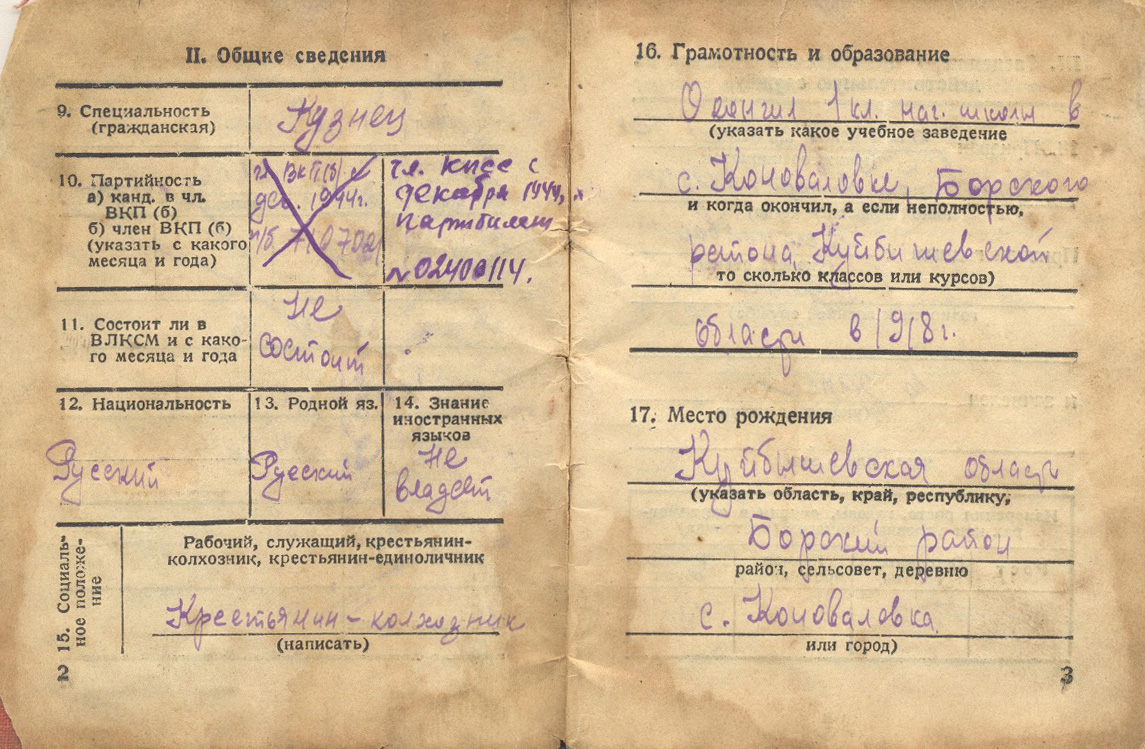 II. Общие сведения
9. Специальность
(гражданская)
Кузнец
10. Партийность
а) канд. в чл.
ВКП (б)
б) член ВКП (б)
(указать с какого
месяца и года)
чл. ВКП(б)
дек. 1944г.
п/б
чл. КПСС с
декабря 1944,
партбилет
№02400114.
11. Состоит ли в
ВЛКСМ и с како-
го месяца и года
Не
состоит
12. Национальность
Русский
13. Родной яз.
Русский
14. Знание
иностранных
языков
Не
владеет
15. Социаль-
ное положе-
ние
Рабочий, служащий, крестьянин-
колхозник, крестьянин-единоличник
Крестьянин-колхозник
(написать)
2
16. Грамотность и образование
Окончил 1 кл. нач. школы в
(указать какое учебное заведение
с. Коноваловке, Борского
и когда окончил, а если неполностью,
района Куйбышевской
то сколько классов или курсов)
области в 1918г.
17. Место рождения
Куйбышевская область
(указать область, край, республику,
Борский район
район, сельсовет, деревню
с. Коноваловка
или город)
3